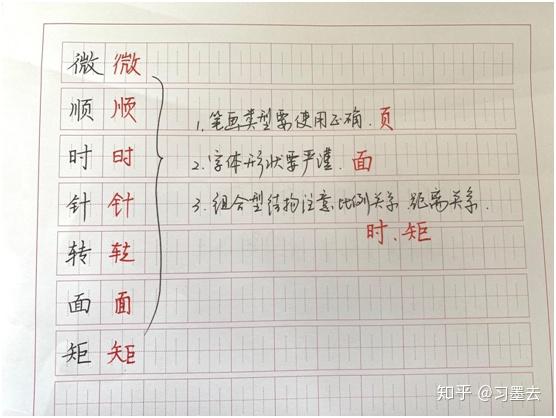 微微
顺顺
时时
针针
转转
面面
矩矩
1.笔画类型要使用正确.页
2.字体形状要严谨.面
3.组合型结构注意比例关系.距离关系.
时、矩
知乎 @习墨去